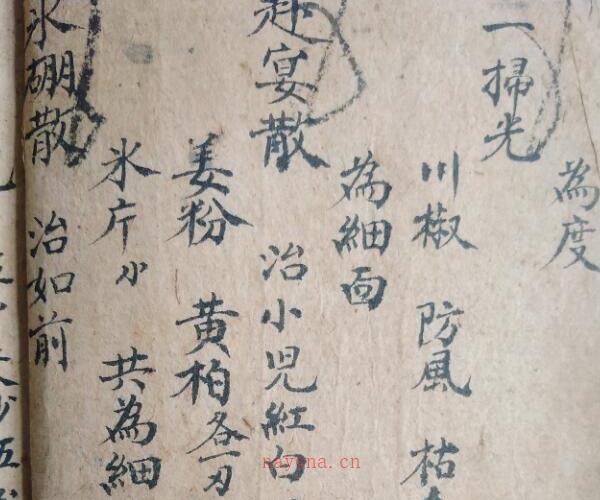 為度
一掃光
川椒 防風 枯
為細面
赴宴散 治小児紅白
姜粉 黄柏各一刃
氷片小 共為細
氷硼散 治如前
nayona.cn